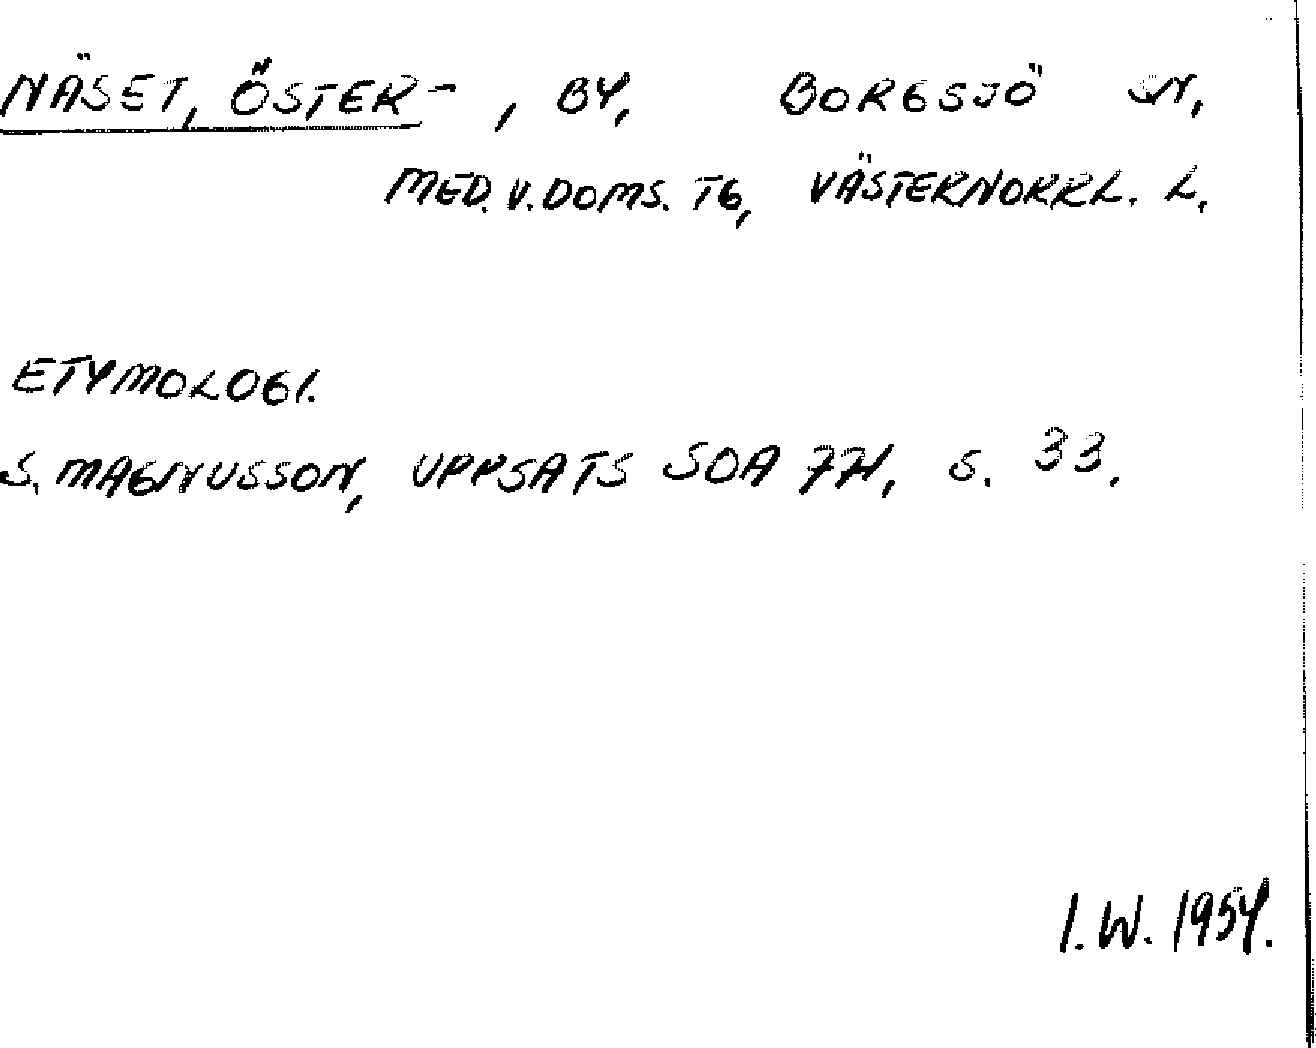 NÄSET, ÖSTER-, BY, BORGSJÖ SN,
MED. V. DOMS. TG, VÄSTERNORRL. L.
ETYMOLOGI.
S. MAGNUSSON, UPPSATS SOA 771, S. 33.
I. W. 1954.